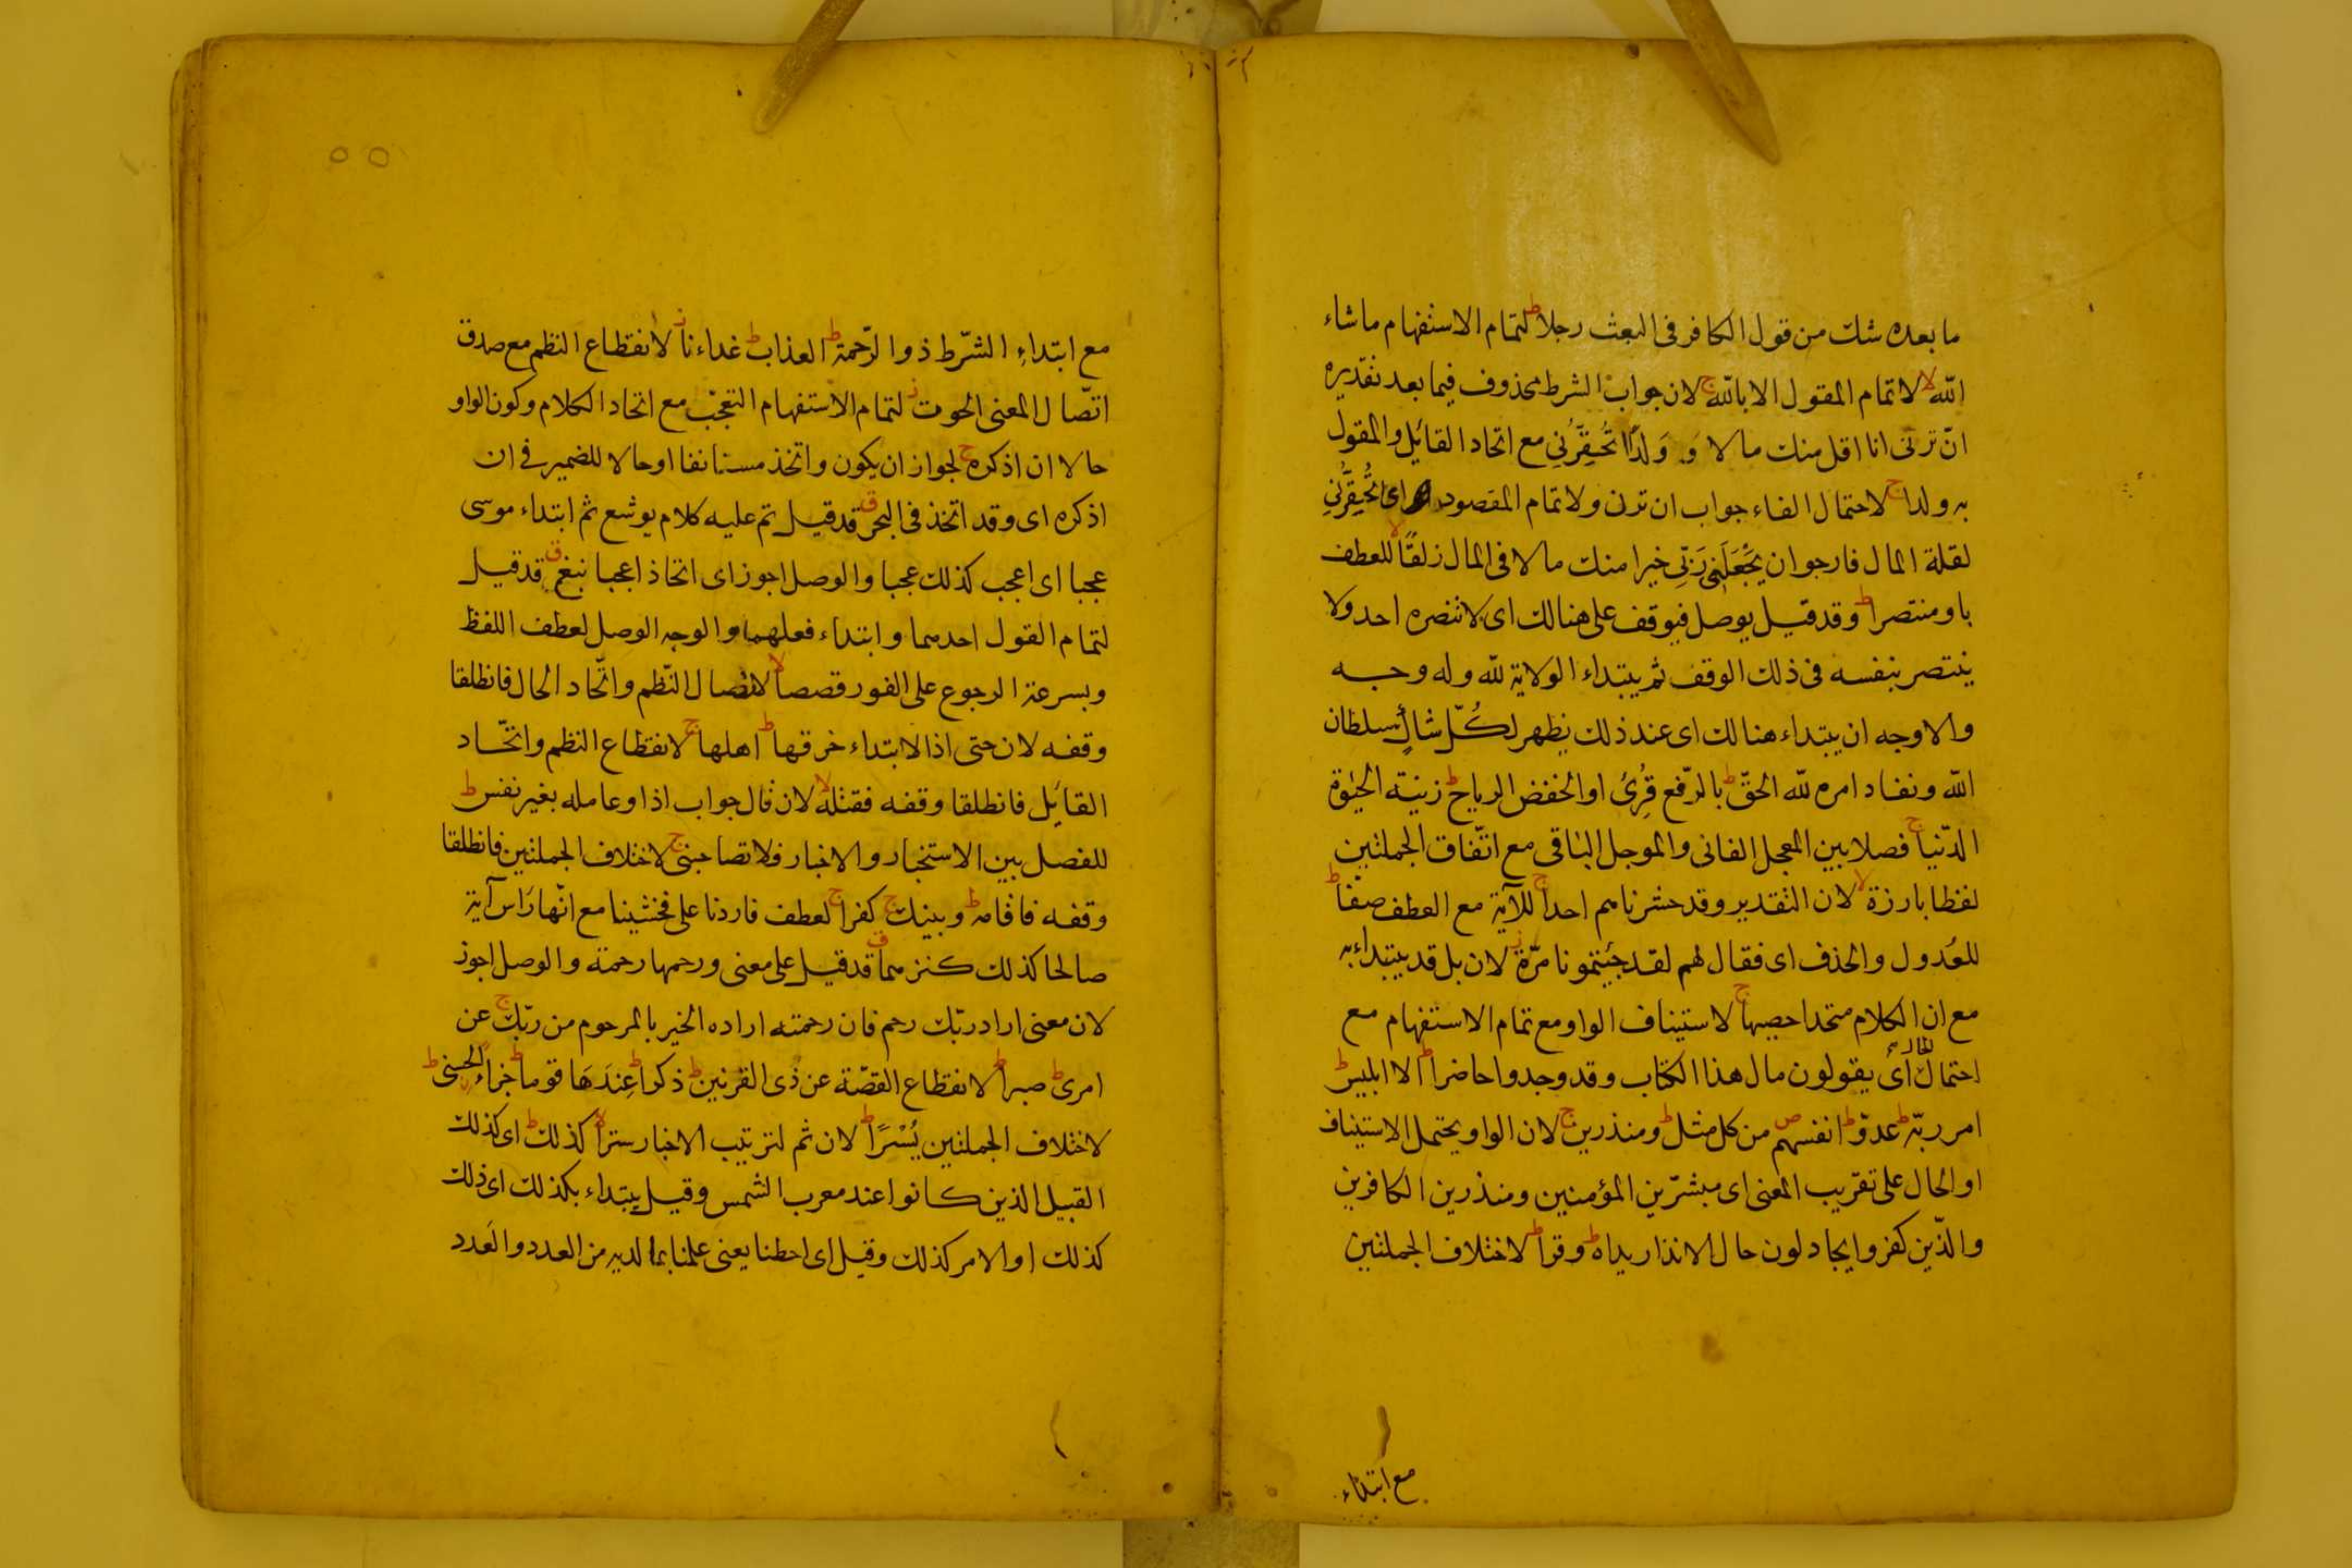 ما بعده شك من قول الكافر فى البعث رجلا ط لتمام الاستفهام ماشاء
الله لا لاتمام المقول الابالله ج لان جواب الشرط محذوف فيما بعد تقديره
ان ترنى انا اقل منك مالا و وَلدًا تُحَقِّرُنِى مع اتحاد القائل والمقول
به ولدا ج لاحتمال الفاء جواب ان ترن ولاتمام المقصود اى تُحَقِّرُنِى
لقلة المال فارجوان يَجْعَلَنِى رَبِّى خيرا منك مالا فى المال زلقًا لا للعطف
باو منتصرا ط وقد قيل يوصل فيوقف على هنالك اى لاتنصره احد ولا
ينتصر بنفسه فى ذلك الوقف ثم يبتداء الولاية لله وله وجه
والاوجه ان يبتداء هنالك اى عند ذلك يظهر لكُلّ شالٍ سلطان
الله ونفاد امره لله الحقّ ط بالرّفع قُرِئ اوالخفض الرياح ط زنيته الحيوة
الدّنيا ج فصلا بين المعجل الفانى والموجل الباقى مع اتّفاق الجملتين
لفظا بارزة لا لان التقدير وقد حشرناهم احدا ج للآية مع العطف صفّا ط
للعُدول والحذف اى فقال لهم لقد جئتمونا مرّة ز لان بل قد يبتداء به
مع ان الكلام متحد احصيها ج لاستيناف الواو مع تمام الاستفهام مع
احتمال الحال اى يقولون مال هذا الكتاب وقد وجدوا حاضرا ط الا ابليس ط
امر ربّه ط عدوّ ط انفسهم ص من كل مثل ط ومنذرين ج لان الواو يحتمل الاستيناف
او الحال على تقريب المعنى اى مبشرّين المؤمنين ومنذرين الكافرين
والذّين كفروا يجادلون حال الانذار يداه ط وقرا ط لاختلاف الجملتين
مع ابتداء
مع ابتداءِ الشّرط ذو الرّحمة ط العذاب ط غداءنا ز لانقطاع النظم مع صدق
اتّصال المعنى الحوت ز لتمام الاستفهام التعجّب مع اتحاد الكلام وكون الواو
حالا ان اذكره ج لجواز ان يكون واتخذ مستانفا او حالا للضمير فى ان
اذكره اى وقد اتخذ فى البحر ق قد قيل تم عليه كلام يوشع ثم ابتداء موسى
عجبا اى اعجب كذلك عجبا والوصل اجوز اى اتخاذ اعجبا نبغ ق قد قيل
لتمام القول احدهما وابتداء فعلهما والوجه الوصل لعطف اللفظ
وبسرعة الرجوع على الفور قصصا لا لاتصال النّظم واتّحاد الحال فانطلقا
وقفه لان حتى اذا الابتداء خرقها ط اهلها ج لانقطاع النظم واتّحاد
القائِل فانطلقا وقفه فقتله لا لان قال جواب اذا وعامله بغير نفس ط
للفصل بين الاستخبار والاخبار فلاتصاحبنى ج لاختلاف الجملتين فانطلقا
وقفه فاقامه ط وبينك ج كفرا ج لعطف فاردنا على فخشينا مع انّها رَاس آية
صالحا كذلك كنزهما ق قد قيل على معنى ورحمها رحمته والوصل اجوز
لان معنى اراد ربّك رحم فان رحمته اراده الخير بالمرحوم من ربّك ج عن
امرى ط صبرا ط لانقطاع القصّة عن ذُى القرنين ط ذكرا ط عِندَهَا قوما ط جزاءً الحسنى ط
لاختلاف الجملتين يُسْرًا ط لان ثم لترتيب الاخبار سترا لا كذلك ط اى كذلك
القبيل الذين كانوا عند معرب الشمس وقيل يبتداء بكذلك اى ذلك
كذلك اوالامر كذلك وقيل اى احطنا يعنى علمنا بما لديه من العدد والعَدد